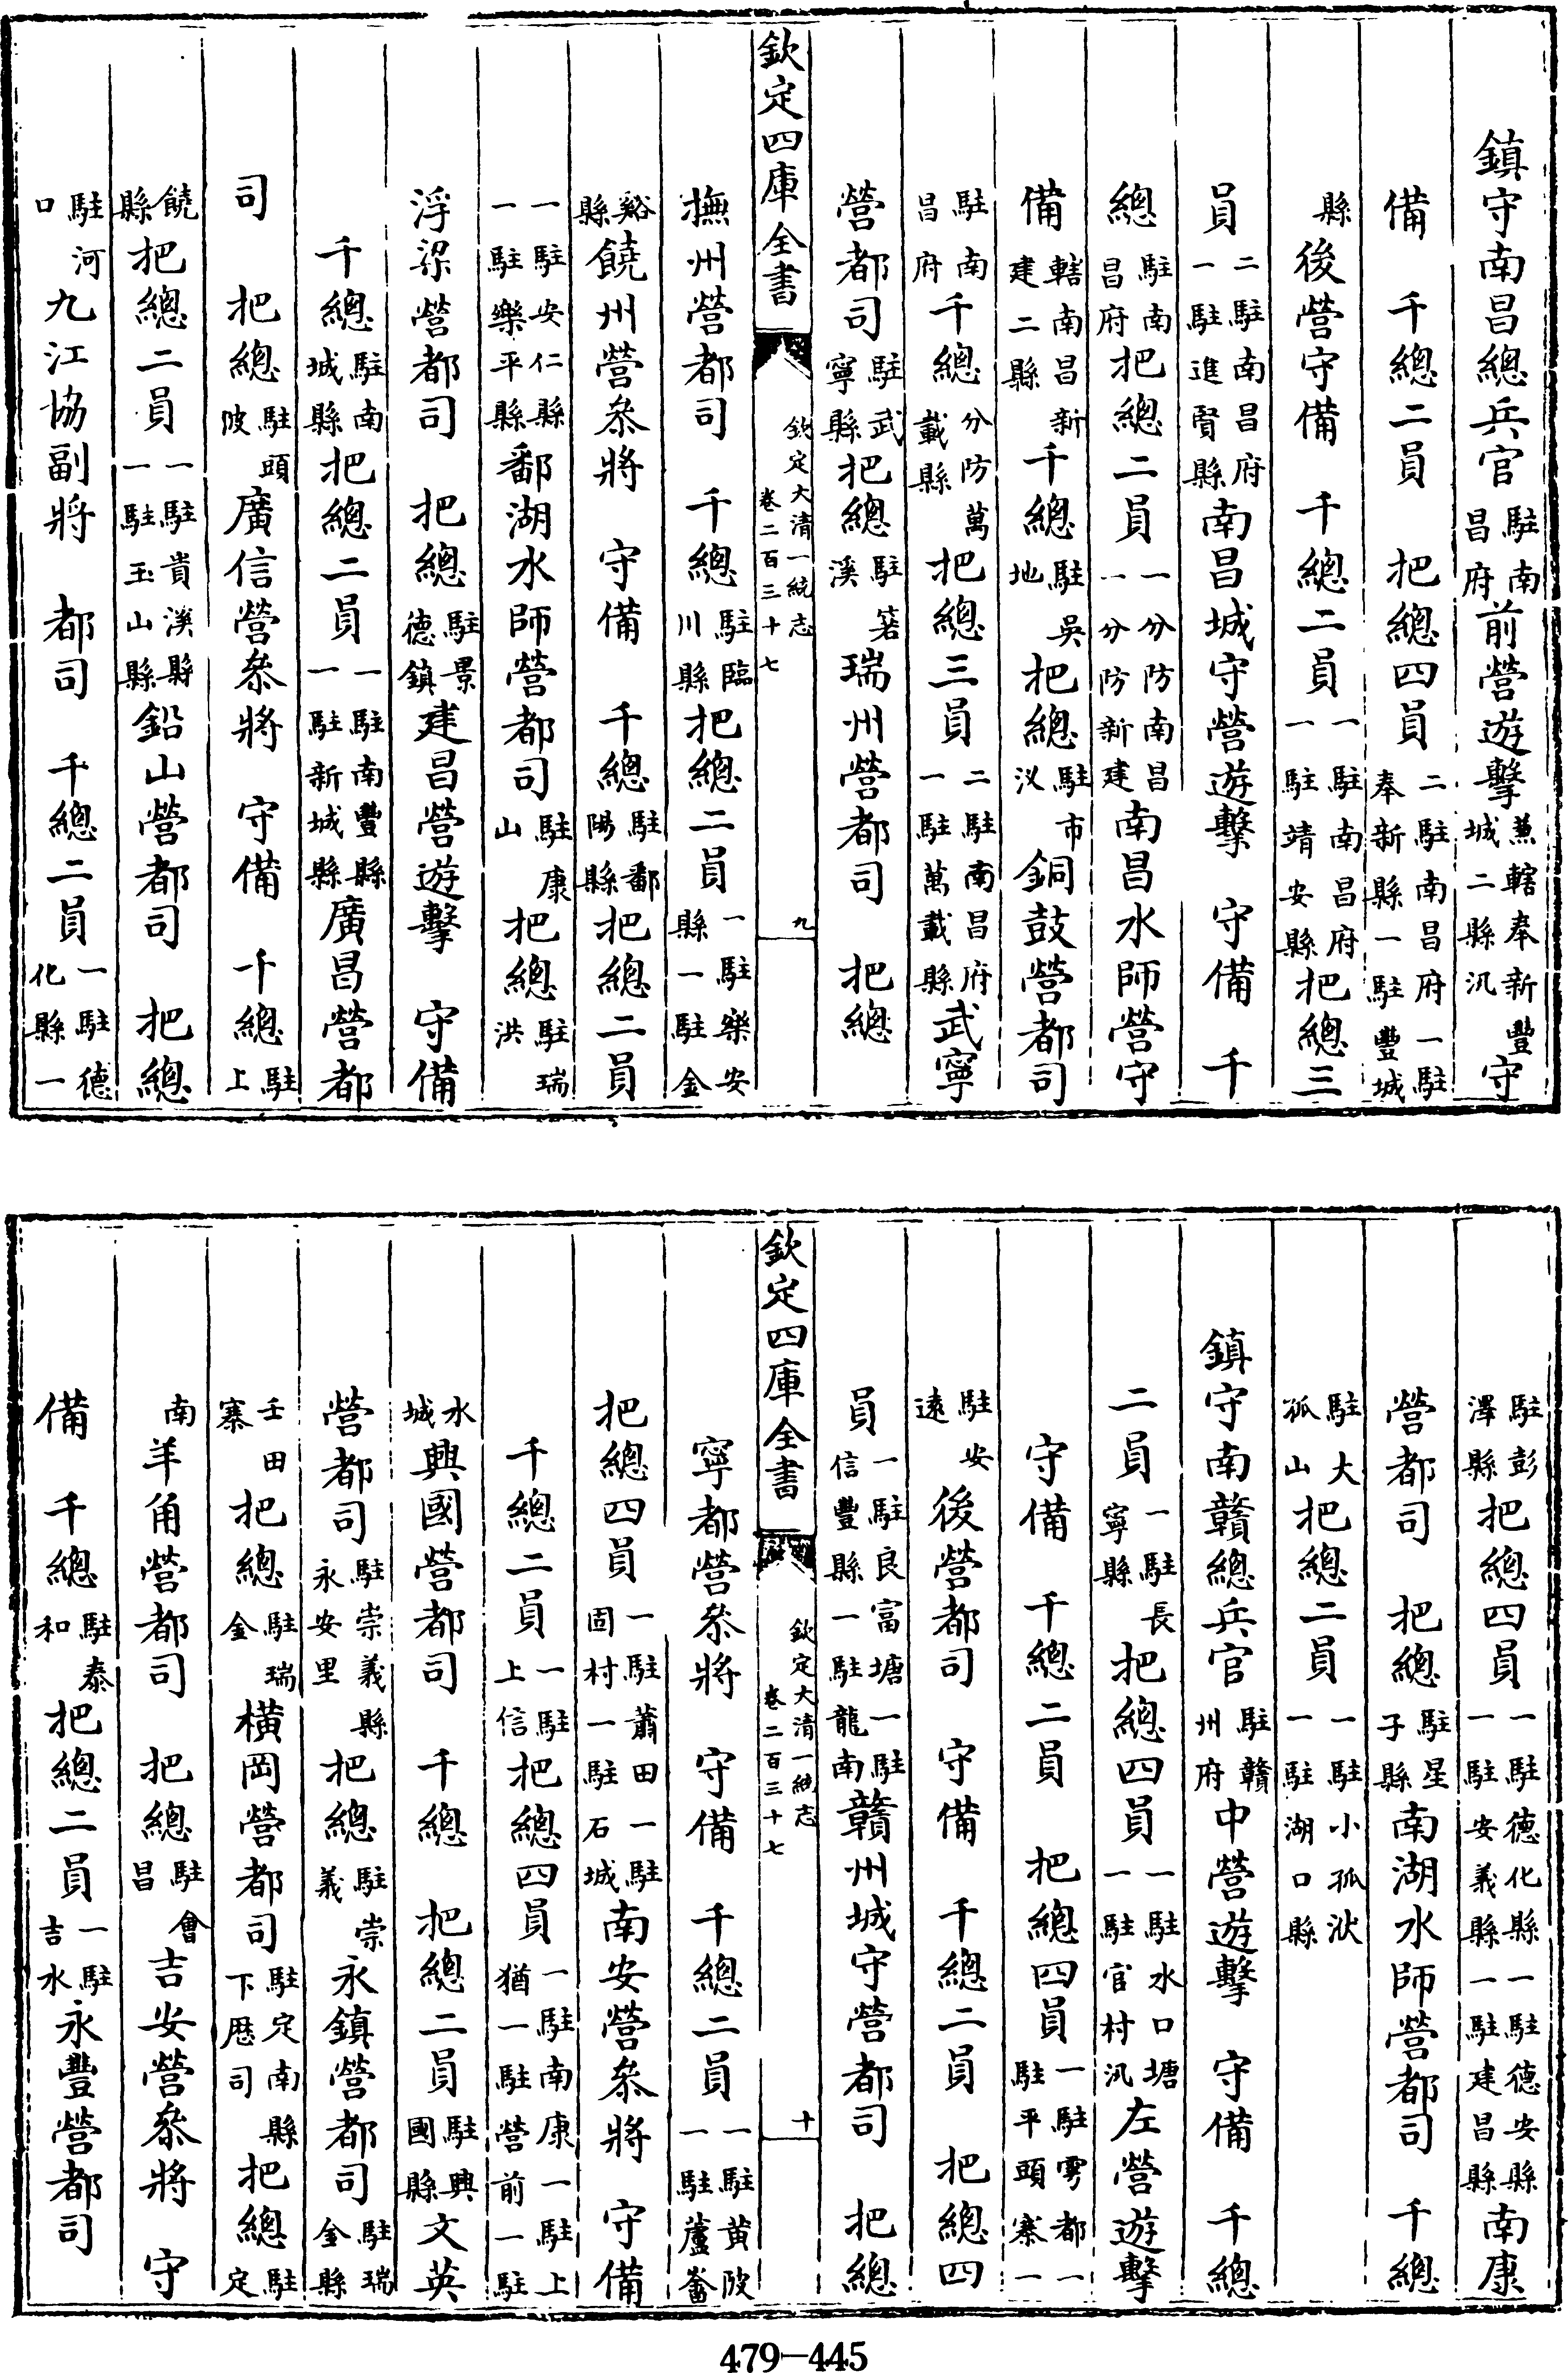 鎮守南昌總兵官駐南昌府前營遊擊兼轄奉新豐城二縣汛守
備　千總二員　把總四員二駐南昌府一駐奉新縣一駐豐城
縣後營守備　千總二員一駐南昌府一駐靖安縣把總三
員二駐南昌府一駐進賢縣南昌城守營遊擊　守備　千
總駐南昌府把總二員一分防南昌一分防新建南昌水師營守
備轄南昌新建二縣千總駐吳地把總駐市汊銅鼓營都司
駐南昌府千總分防萬載縣把總三員二駐南昌府一駐萬載縣武寧
營都司駐武寧縣把總駐箬溪瑞州營都司　把總
欽定四庫全書　欽定大清一統志卷二百三十七　九
撫州營都司　千總駐臨川縣把總二員一駐樂安縣一駐金
谿縣饒州營參將　守備　千總駐鄱陽縣把總二員
一駐安仁縣一駐樂平縣鄱湖水師營都司駐康山把總駐瑞洪
浮梁營都司　把總駐景德鎮建昌營遊擊　守備
千總駐南城縣把總二員一駐南豐縣一駐新城縣廣昌營都
司　把總駐頭陂廣信營參將　守備　千總駐上
饒縣把總二員一駐貴溪縣一駐玉山縣鉛山營都司　把總
駐河口九江協副將　都司　千總二員一駐德化縣一
駐彭澤縣把總四員一駐德化縣一駐德安縣一駐安義縣一駐建昌縣南康
營都司　把總駐星子縣南湖水師營都司　千總
駐大孤山把總二員一駐小孤洑一駐湖口縣
鎮守南贛總兵官駐贛州府中營遊擊　守備　千總
二員一駐長寧縣把總四員一駐水口塘一駐官村汛左營遊擊
守備　千總二員　把總四員一駐雩都一駐平頭寨一
駐安遠後營都司　守備　千總二員　把總四
員一駐良富塘一駐信豐縣一駐龍南贛州城守營都司　把總
欽定四庫全書　欽定大清一統志卷二百三十七　十
寧都營參將　守備　千總二員一駐黃陂一駐蘆畬
把總四員一駐蕭田一駐固村一駐石城南安營參將　守備
千總二員一駐上信把總四員一駐南康一駐上猶一駐營前一駐
水城興國營都司　千總　把總二員駐興國縣文英
營都司駐崇義縣永安里把總駐崇義永鎮營都司駐瑞金縣
壬田寨把總駐瑞金橫岡營都司駐定南縣下歷司把總駐定
南羊角營都司　把總駐會昌吉安營參將　守
備　千總駐泰和把總二員一駐吉水永豐營都司
479-445